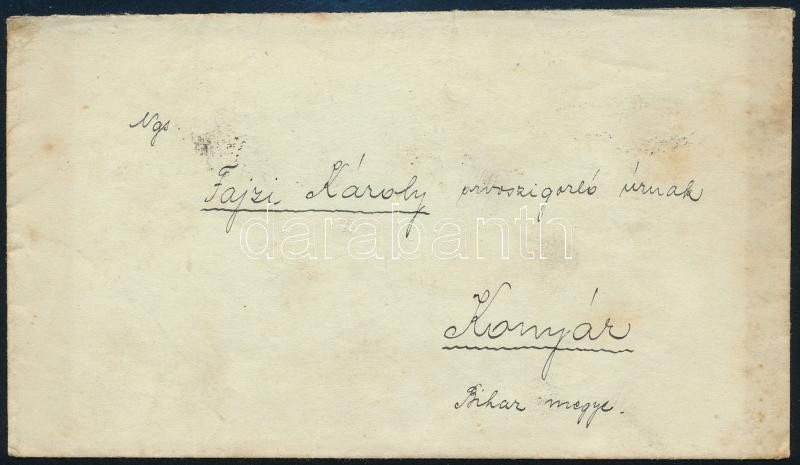 Ngs.
Fajzi Károly orvoszigorló úrnak
darabanth
Konyár
Bihar megye.